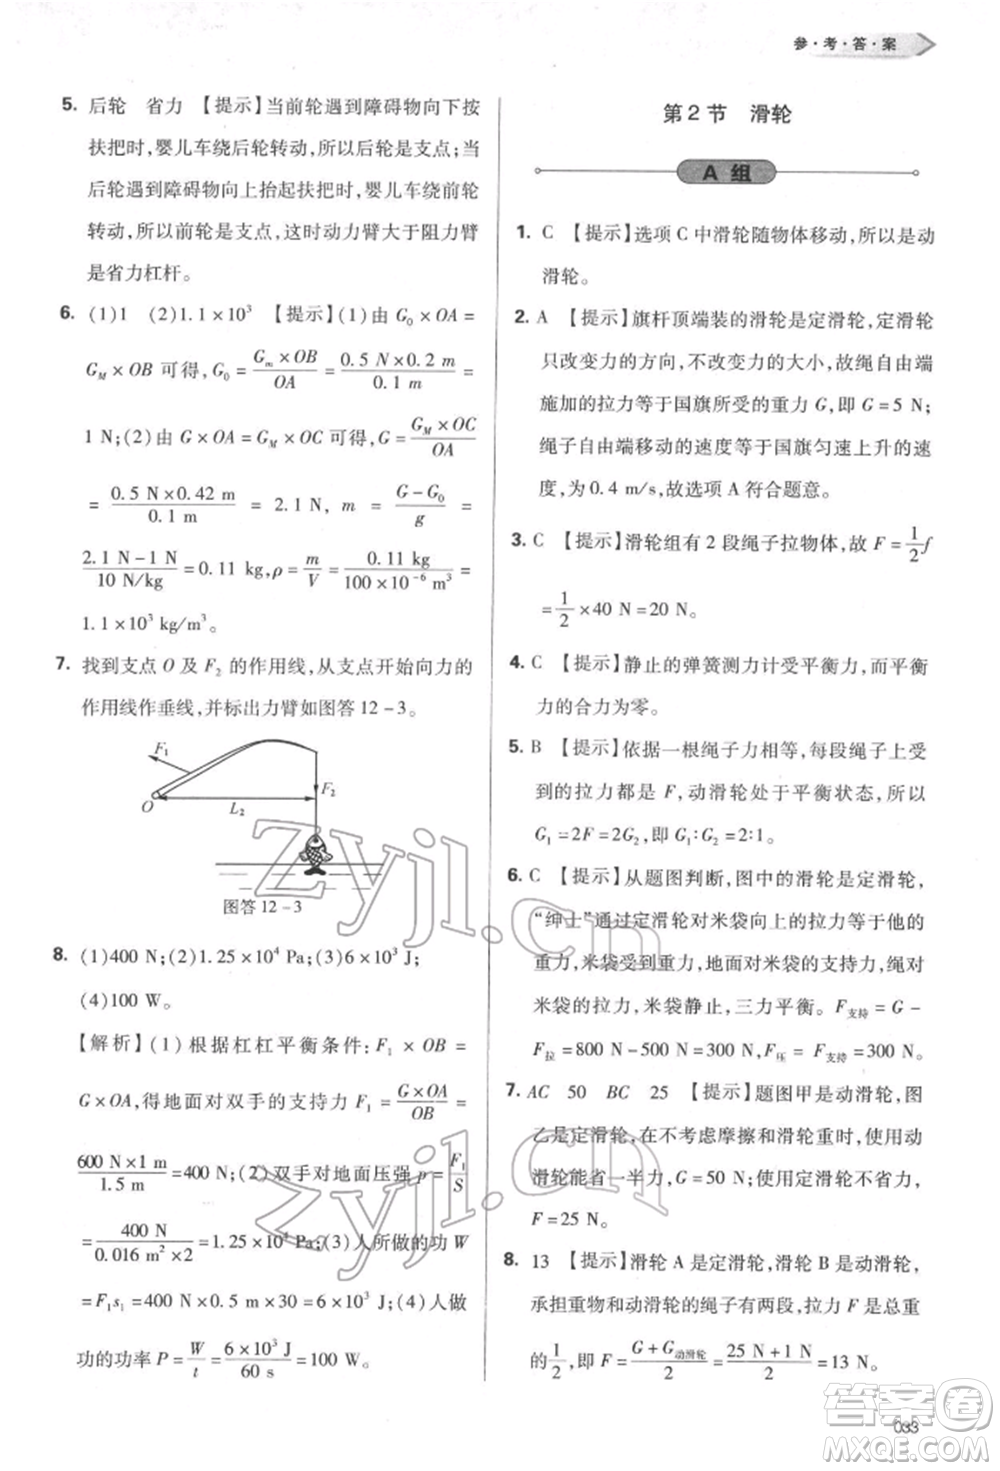 参·考·答·案
5. 后轮 省力 【提示】当前轮遇到障碍物向下按
扶把时,婴儿车绕后轮转动,所以后轮是支点;当
后轮遇到障碍物向上抬起扶把时,婴儿车绕前轮
转动,所以前轮是支点,这时动力臂大于阻力臂
是省力杠杆。
6. (1)1 (2)1.1×10³ 【提示】(1)由 G₀×OA=
G_M×OB 可得,G₀=G_m×OB/OA=0.5 N×0.2 m/0.1 m=
1 N;(2)由 G×OA=G_M×OC 可得,G=G_M×OC/OA
=0.5 N×0.42 m/0.1 m=2.1 N,m=G-G₀/g=
2.1 N-1 N/10 N/kg=0.11 kg,ρ=m/V=0.11 kg/100×10⁻⁶ m³=
1.1×10³ kg/m³。
7. 找到支点 O 及 F₂ 的作用线,从支点开始向力的
作用线作垂线,并标出力臂如图答 12-3。
F₁
F₂
O
L₂
图答 12-3
8. (1)400 N;(2)1.25×10⁴ Pa;(3)6×10³ J;
(4)100 W。
【解析】(1)根据杠杠平衡条件:F₁×OB=
G×OA,得地面对双手的支持力 F₁=G×OA/OB=
600 N×1 m/1.5 m=400 N;(2)双手对地面压强 p=F₁/S
=400 N/0.016 m²×2=1.25×10⁴ Pa;(3)人所做的功 W
=F₁s₁=400 N×0.5 m×30=6×10³ J;(4)人做
功的功率 P=W/t=6×10³ J/60 s=100 W。
第 2 节 滑轮
A 组
1. C 【提示】选项 C 中滑轮随物体移动,所以是动
滑轮。
2. A 【提示】旗杆顶端装的滑轮是定滑轮,定滑轮
只改变力的方向,不改变力的大小,故绳自由端
施加的拉力等于国旗所受的重力 G,即 G=5 N;
绳子自由端移动的速度等于国旗匀速上升的速
度,为 0.4 m/s,故选项 A 符合题意。
3. C 【提示】滑轮组有 2 段绳子拉物体,故 F=1/2f
=1/2×40 N=20 N。
4. C 【提示】静止的弹簧测力计受平衡力,而平衡
力的合力为零。
5. B 【提示】依据一根绳子力相等,每段绳子上受
到的拉力都是 F,动滑轮处于平衡状态,所以
G₁=2F=2G₂,即 G₁∶G₂=2∶1。
6. C 【提示】从题图判断,图中的滑轮是定滑轮,
“绅士”通过定滑轮对米袋向上的拉力等于他的
重力,米袋受到重力,地面对米袋的支持力,绳对
米袋的拉力,米袋静止,三力平衡。F支持=G-
F拉=800 N-500 N=300 N,F压=F支持=300 N。
7. AC 50 BC 25 【提示】题图甲是动滑轮,图
乙是定滑轮,在不考虑摩擦和滑轮重时,使用动
滑轮能省一半力,G=F=50 N;使用定滑轮不省力,
F=25 N。
8. 13 【提示】滑轮 A 是定滑轮,滑轮 B 是动滑轮,
承担重物和动滑轮的绳子有两段,拉力 F 是总重
的1/2,即 F=G+G动滑轮/2=25 N+1 N/2=13 N。
033
zyjl.cn
zyjl.cn
答案圈
MXQE.COM